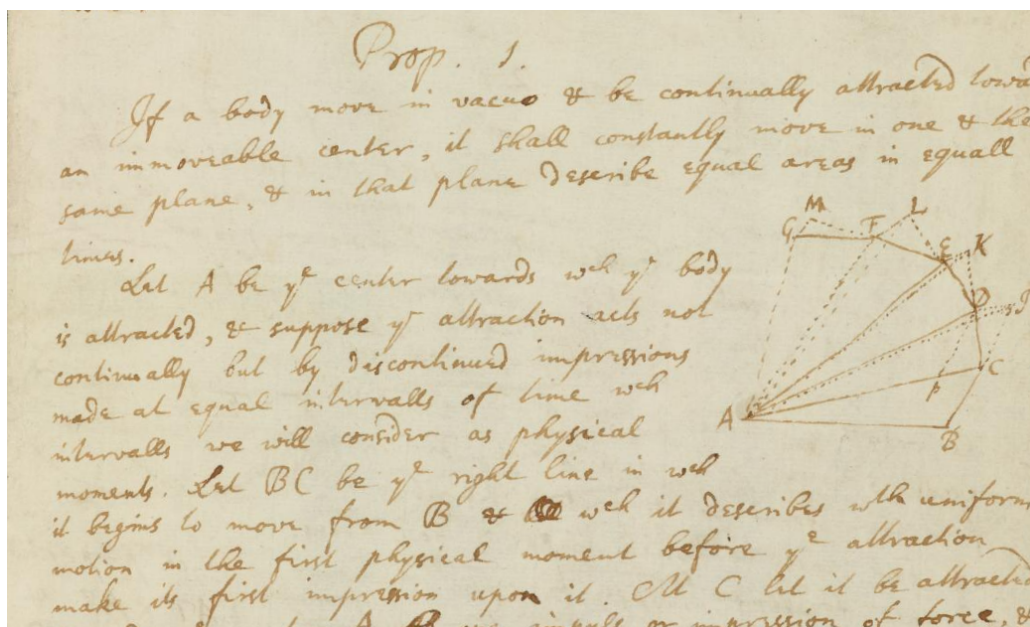 Prop. 1.
If a body move in vacuo & be continually attracted towa
an immoveable center, it shall constantly move in one & the
same plane, & in that plane describe equal areas in equall
times.
Let A be yᵉ center towards wᶜʰ yᵉ body
is attracted, & suppose yᵉ attraction acts not
continually but by discontinued impressions
made at equal intervalls of time wᶜʰ
intervalls we will consider as physical
moments. Let BC be yᵉ right line in wᶜʰ
it begins to move from B & wᶜʰ it describes wᵗʰ uniform
motion in the first physical moment before yᵉ attraction
make its first impression upon it. At C let it be attracted
A impuls or impression of force, &
G M F L E K D I
C P A B